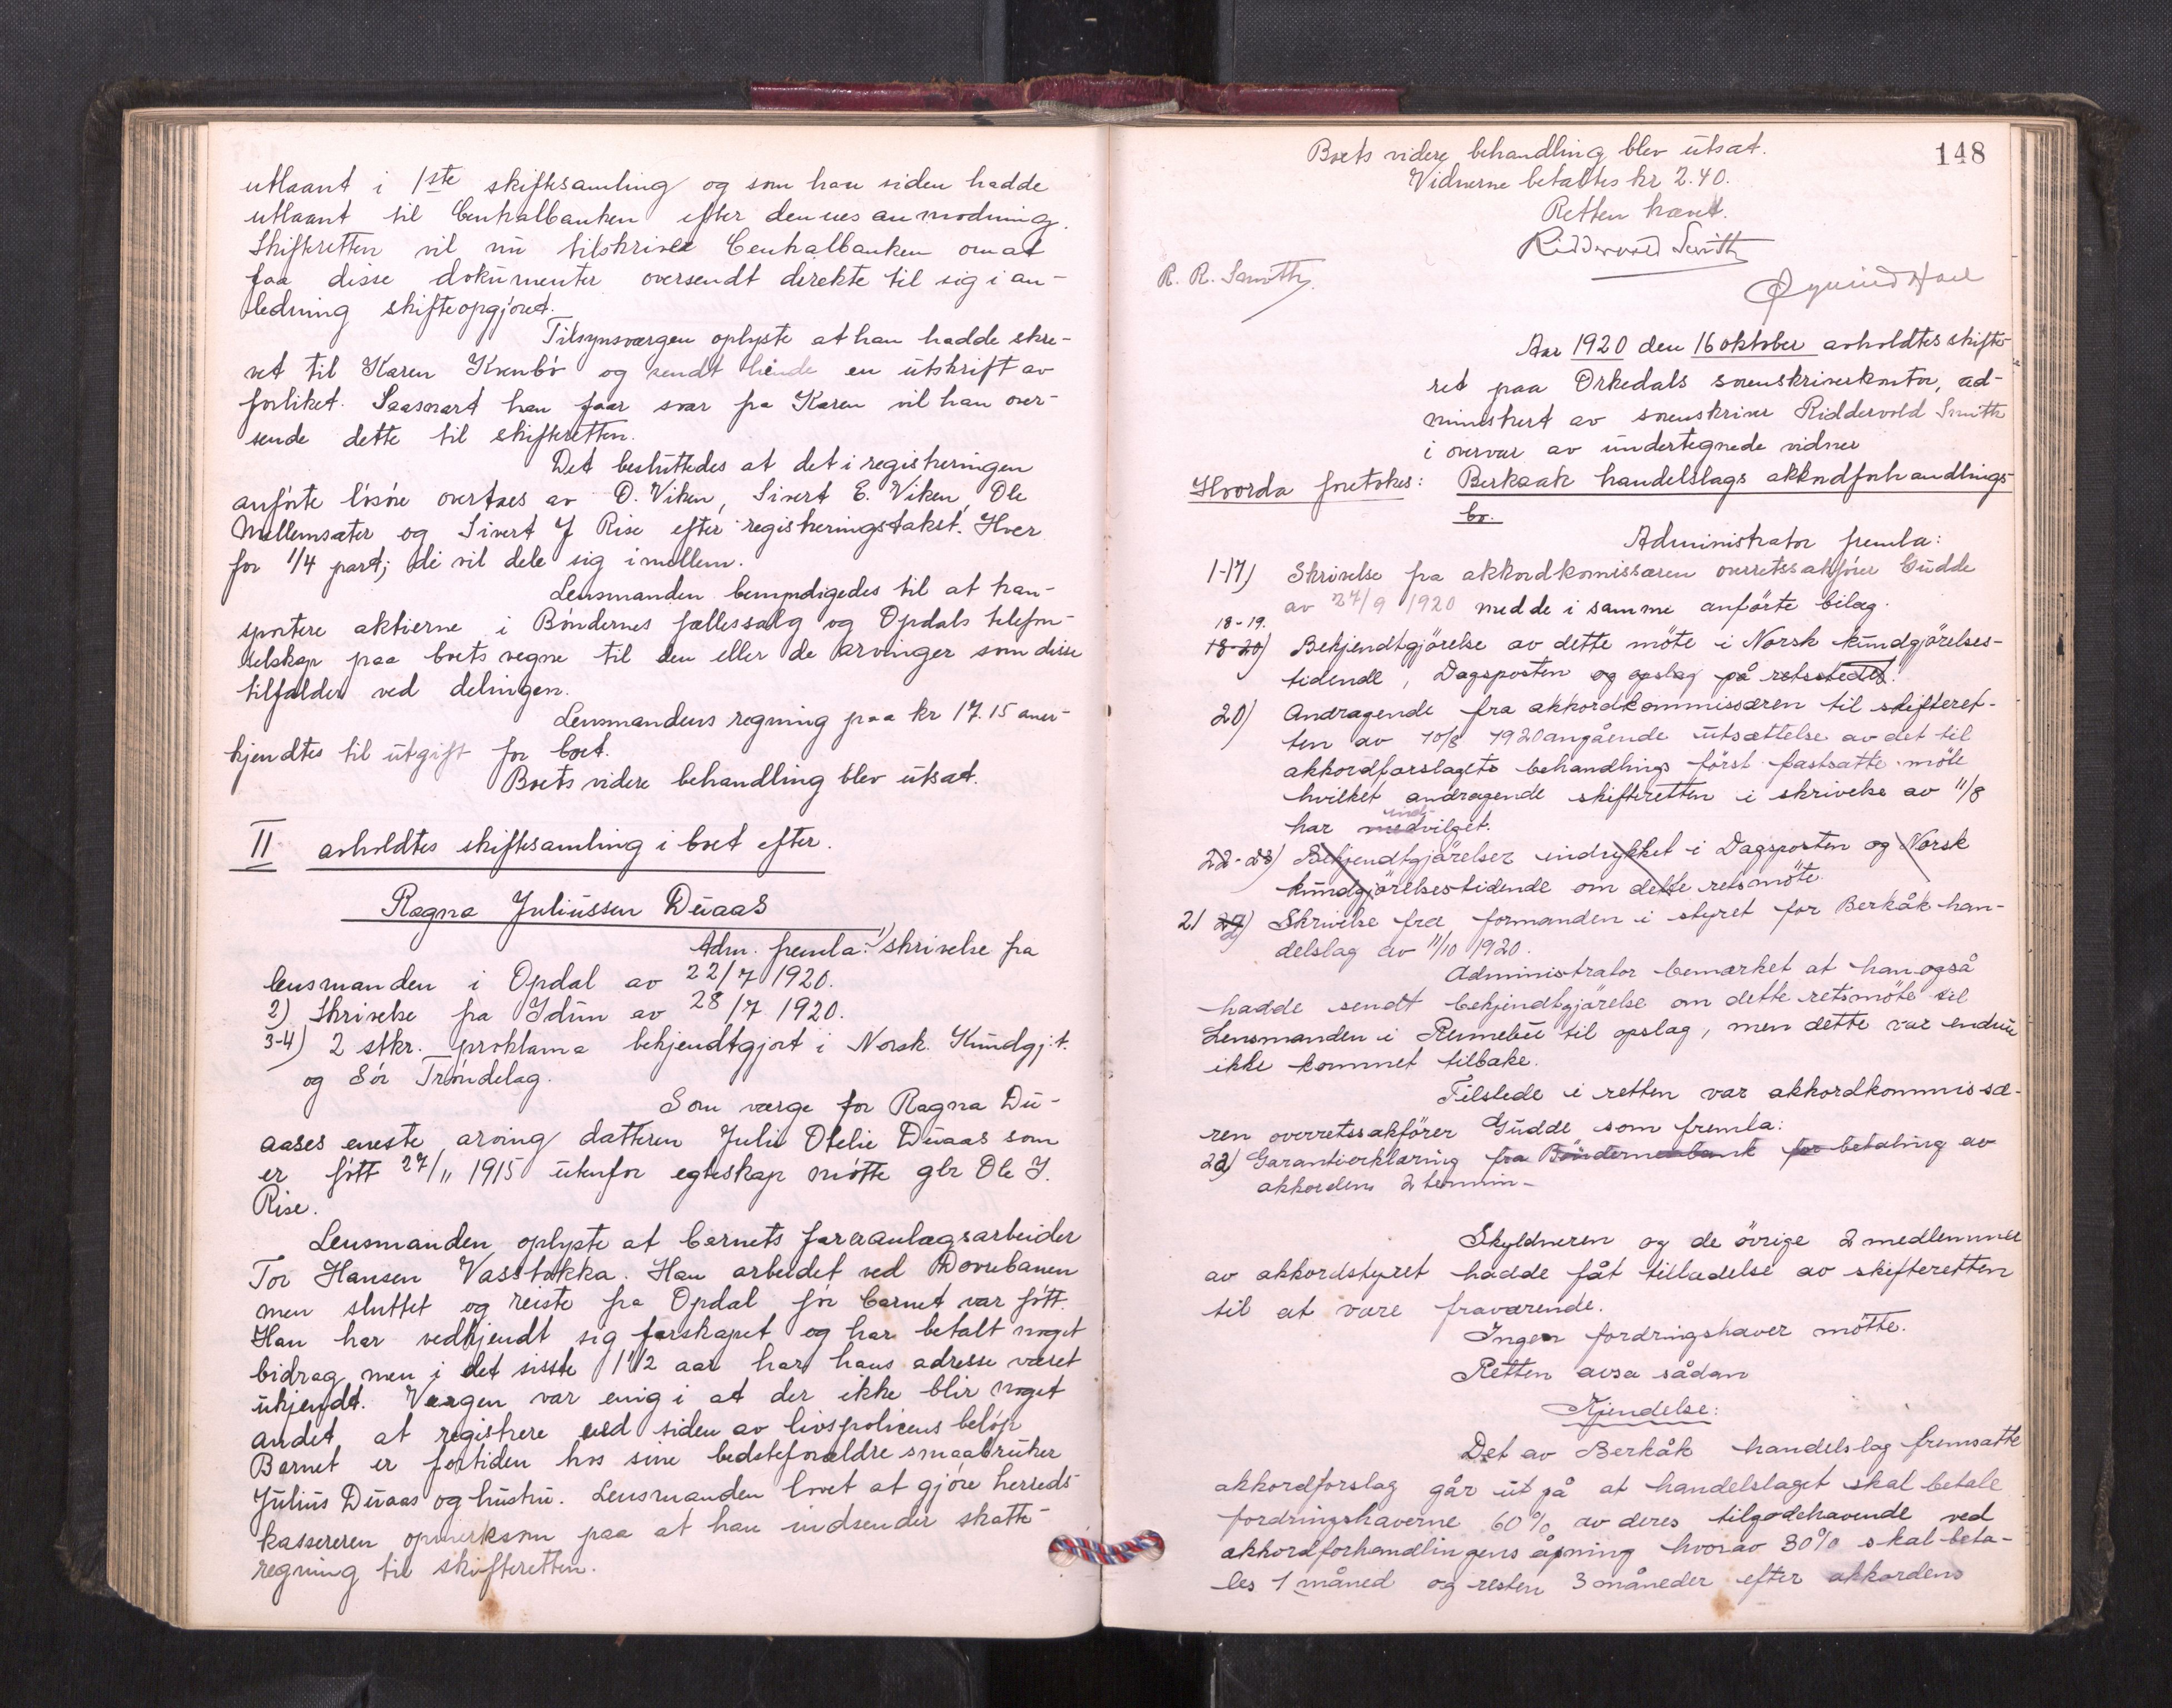 utlaant i 1ste skiftesamling og som han siden hadde
utlaant til Centralbanken efter dennes anmodning.
Skifteretten vil nu tilskrive Centralbanken om at
faa disse dokumenter oversendt direkte til sig i an-
ledning skifteopgjøret.
Tilsynsværgen oplyste at han hadde skre-
vet til Karen Kvenbø og sendt hende en utskrift av
forliket. Saasnart han faar svar fra Karen vil han over-
sende dette til skifteretten.
Det besluttedes at det i registreringen
anførte løsøre overtaes av O. Viken, Sivert E. Viken, Ole
Mellemsæter og Sivert J Rise efter registreringstakst. Hver
for 1/4 part; de vil dele sig imellem.
Lensmanden bemyndigedes til at tran-
sportere aktierne i Bøndernes fællessalg og Opdals telefon-
selskap paa boets vegne til den eller de arvinger som disse
tilfalder ved delingen.
Lensmandens regning paa kr 17.15 aner-
kjendtes til utgift for boet.
Boets videre behandling blev utsat.
II avholdtes skiftesamling i boet efter.
Ragna Juliussen Duaas
Adm. fremla: 1) skrivelse fra
lensmanden i Opdal av 22/7 1920.
2) Skrivelse fra Idun av 28/7 1920.
3-4) 2 stkr. proklama bekjendtgjort i Norsk. Kundgj.t.
og Sør Trøndelag.
Som værge for Ragna Du-
aases eneste arving datteren Julie Otelie Duaas som
er født 27/11 1915 utenfor egteskap møtte gbr Ole J.
Rise.
Lensmanden oplyste at barnets far er anlægsarbeider
Tor Hansen Vasstøkka. Han arbeidet ved Dovrebanen
men sluttet og reiste fra Opdal før barnet var født.
Han har vedkjendt sig farskapet og har betalt noget
bidrag men i det sisste 1 1/2 aar har hans adresse været
ukjendt. Værgen var enig i at der ikke blir noget
andet at registrere ved siden av livspolicens beløp
Barnet er fortiden hos sine bedsteforældre smaabruker
Julius Duaas og hustru. Lensmanden lovet at gjøre herreds-
kassereren opmerksom paa at han indsender skatte-
regning til skifteretten.
148
Boets videre behandling blev utsat.
Vidnerne betaltes kr 2.40.
Retten hævet.
Riddervold Smith
R. R. Smith
Øyvind
Aar 1920 den 16 oktober avholdtes skifte-
ret paa Orkedals sorenskriverkontor, ad-
ministrert av sorenskriver Riddervold Smith
i overvær av undertegnede vidner
Hvorda foretokes: Berkaak handelslags akkordforhandlings-
bo.
Administrator fremla:
1-17) Skrivelse fra akkordkomissæren overretssakfører Gudde
av 27/9 1920 med de i samme anførte bilag.
18-19.
18-20) Bekjendtgjörelse av dette möte i Norsk kundgjörelses-
tidende, Dagsposten og opslag på retsstedet.
20) Andragende fra akkordkommissæren til skifteret-
ten av 10/8 1920 angående utsættelse av det til
akkordforslagets behandling först fastsatte möte
hvilket andragende skifteretten i skrivelse av 11/8
ind
har medvilget.
22-23) Bekjendtgjörelser indrykket i Dagsposten og Norsk
kundgjörelsestidende om dette retsmöte.
21 24) Skrivelse fra formanden i styret for Berkåk han-
delslag av 11/10 1920.
Administrator bemærket at han også
hadde sendt bekjendtgjörelse om dette retsmöte til
Lensmanden i Rennebu til opslag, men dette var endnu
ikke kommet tilbake.
Tilstede i retten var akkordkommissæ-
ren overretssakförer Gudde som fremla:
22) Garantierklæring fra Böndernes bank for betaling av
akkordens 2 termin-
Skyldneren og de övrige 2 medlemmer
av akkordstyret hadde fåt tilladelse av skifteretten
til at være fraværende.
Ingen fordringshaver mötte.
Retten avsa sådan
Kjendelse:
Det av Berkåk handelslag fremsatte
akkordforslag går ut på at handelslaget skal betale
fordringshaverne 60% av deres tilgodehavende ved
akkordforhandlingens åpning hvorav 30% skal beta-
les 1 måned og resten 3 måneder efter akkordens